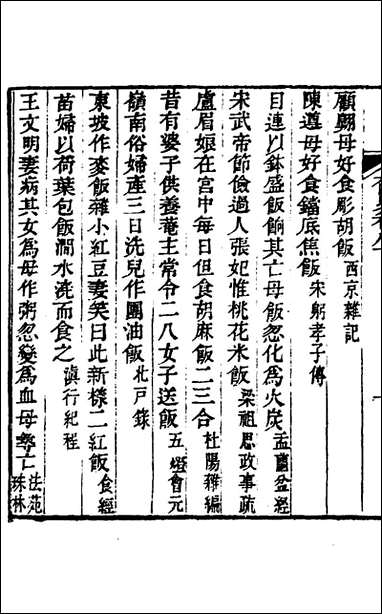 顧翽母好食彫胡飯西京雜記
陳遺母好食鐺底焦飯宋躬孝子傳
目連以鉢盛飯餉其亡母飯忽化爲火炭盂蘭盆經
宋武帝節儉過人張妃惟桃花米飯梁祖思政事疏
盧眉娘在宮中每日但食胡麻飯二三合杜陽雜編
昔有婆子供養菴主常令二八女子送飯五燈會元
嶺南俗婦產三日洗兒作團油飯北戸錄
東坡作麥飯雜小紅豆妻笑曰此新樣二紅飯食經
苗婦以荷葉包飯澗水澆而食之滇行紀程
王文明妻病其女爲母作粥忽變爲血母尋亡法苑珠林